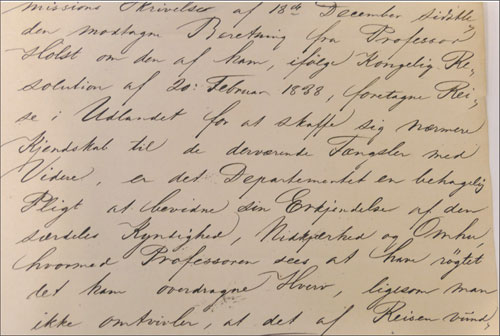 missions Skrivelse af 18de December sidstl.
den modtagne Beretning fra Professor
Holst om den af ham, ifølge Kongelig Re-
solution af 20. Februar 1838, foretagne Rei-
se i Udlandet for at skaffe sig nærmere
Kjendskab til de derværende Fængsler med
Videre, er det Departementet en behagelig
Pligt at bevidne sin Erkjendelse af den
særdeles Kyndighed, Nidkjærhed og Omhu,
hvormed Professoren sees at have røgtet
det ham overdragne Hverv, ligesom man
ikke omtvivler, at det af Reisen